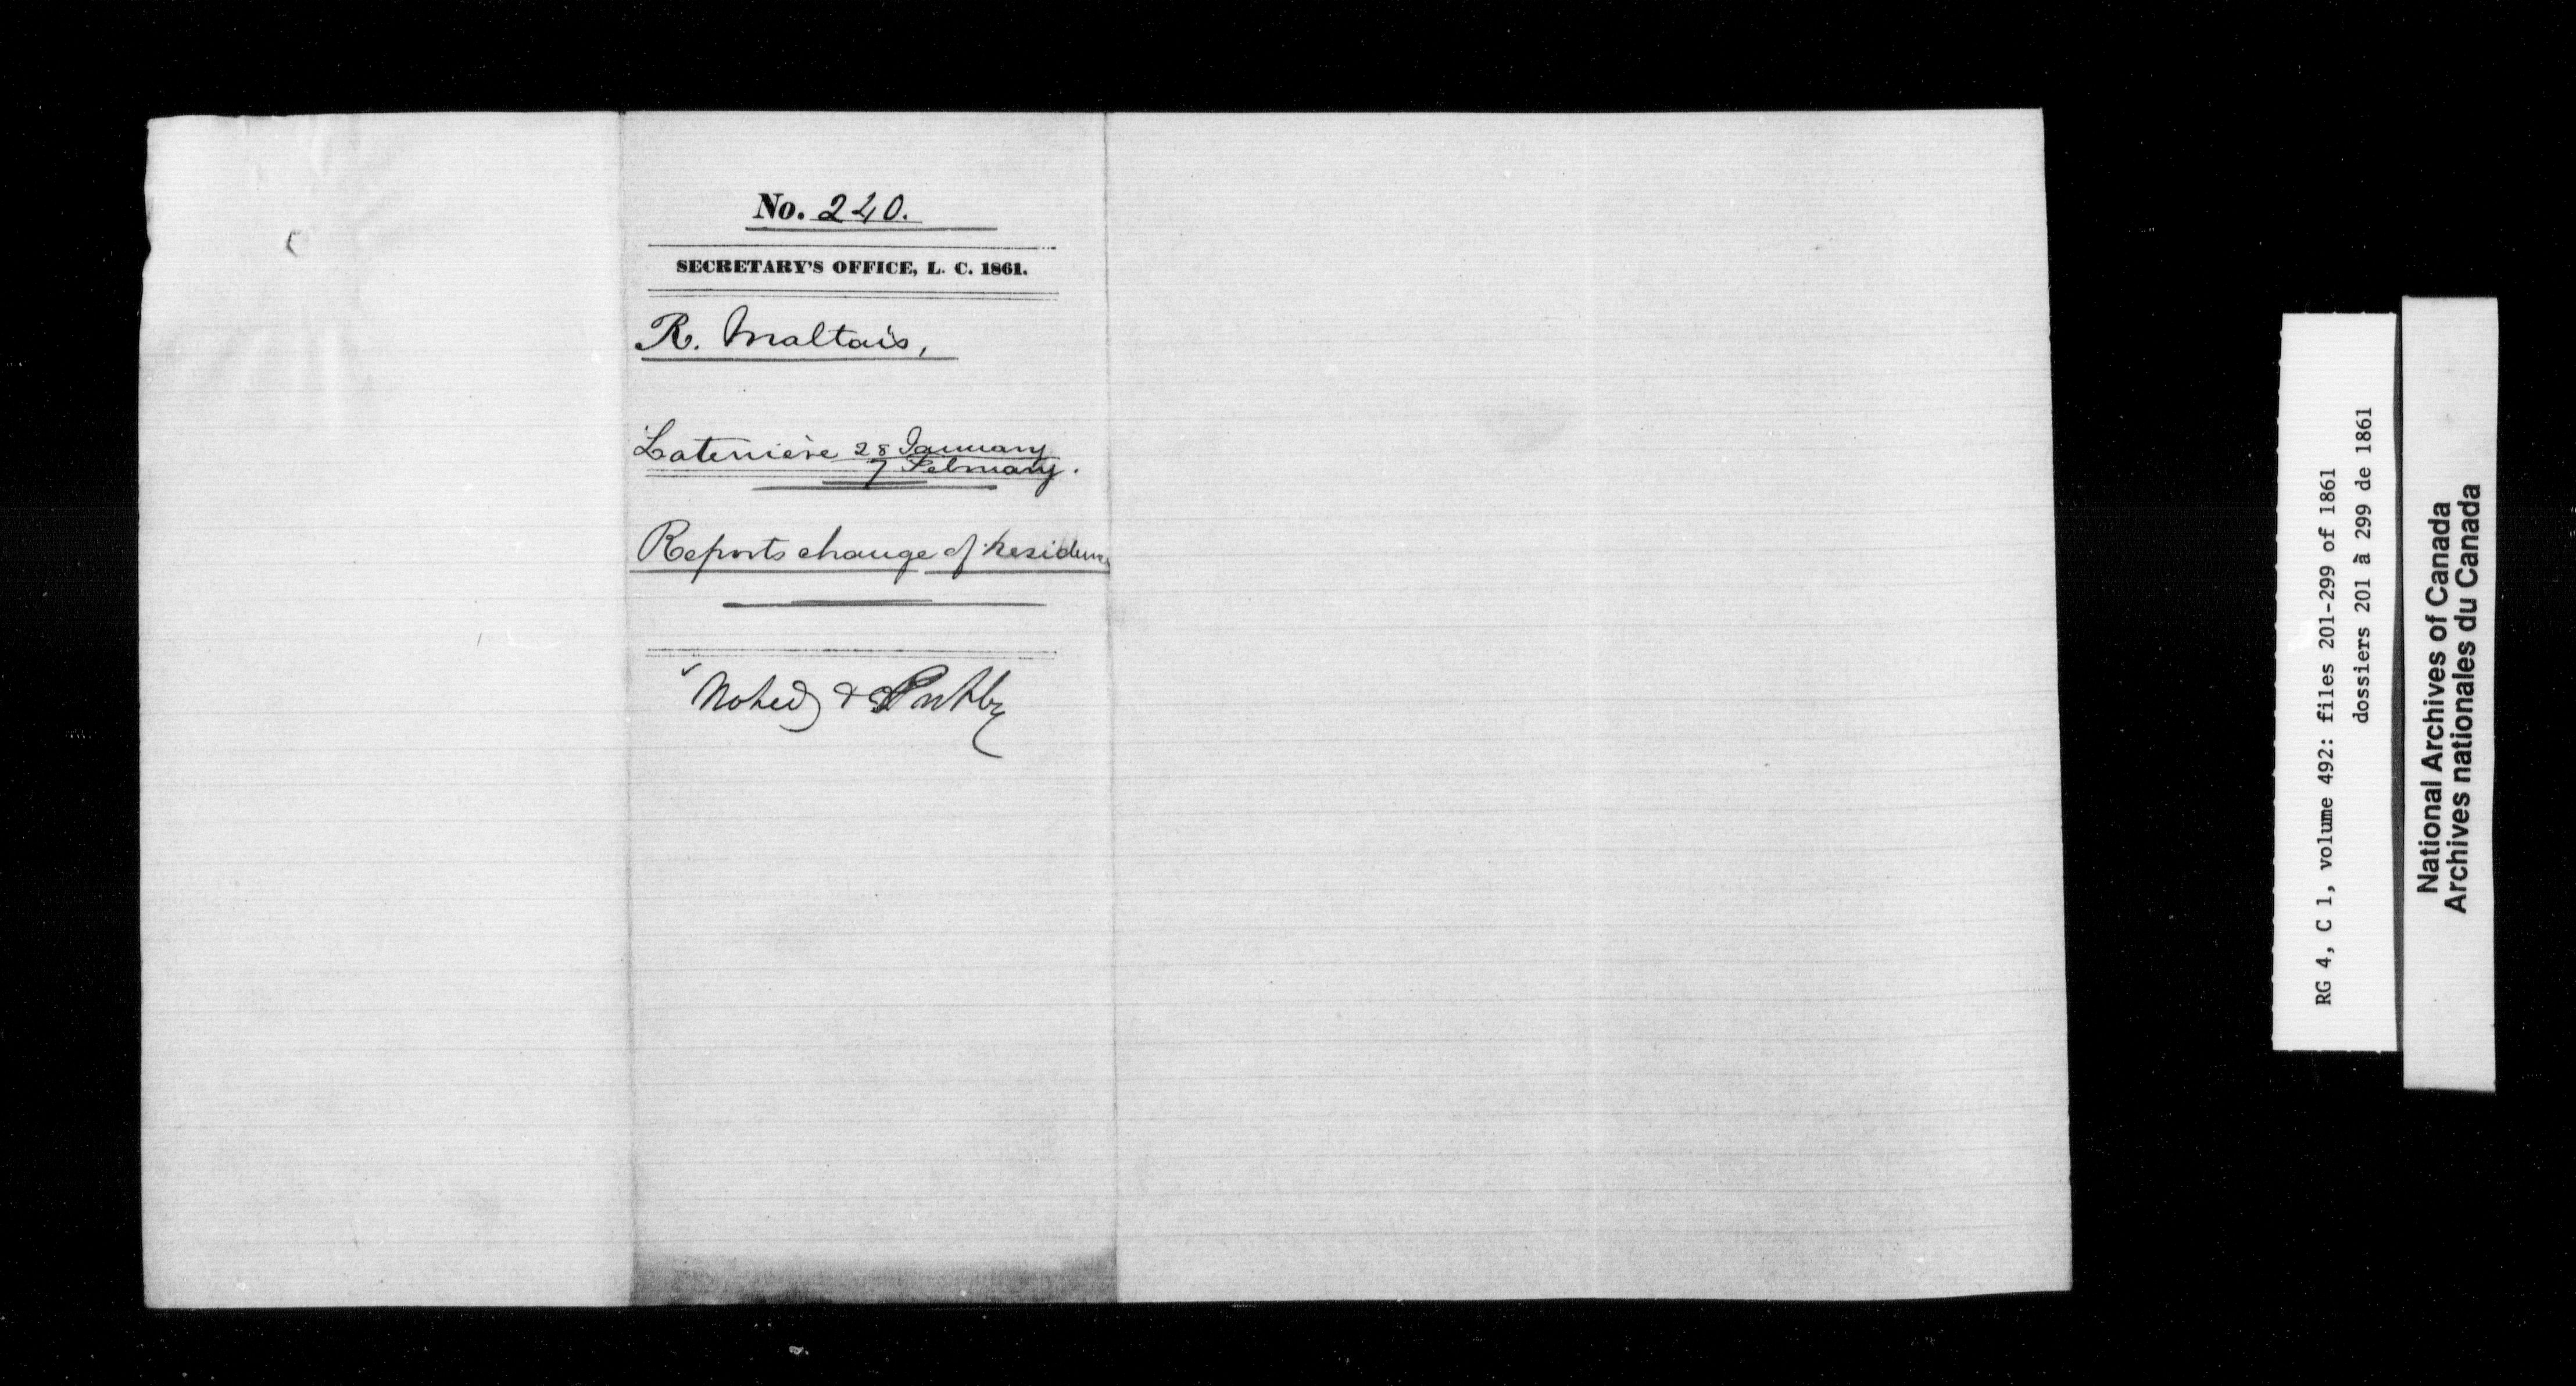 No. 240.
SECRETARY'S OFFICE, L. C. 1861.
R. Maltais,
Laterrière 28 January
7 February.
Reports change of residence
Noted &
RG 4, C 1, volume 492: files 201-299 of 1861
dossiers 201 à 299 de 1861
National Archives of Canada
Archives nationales du Canada